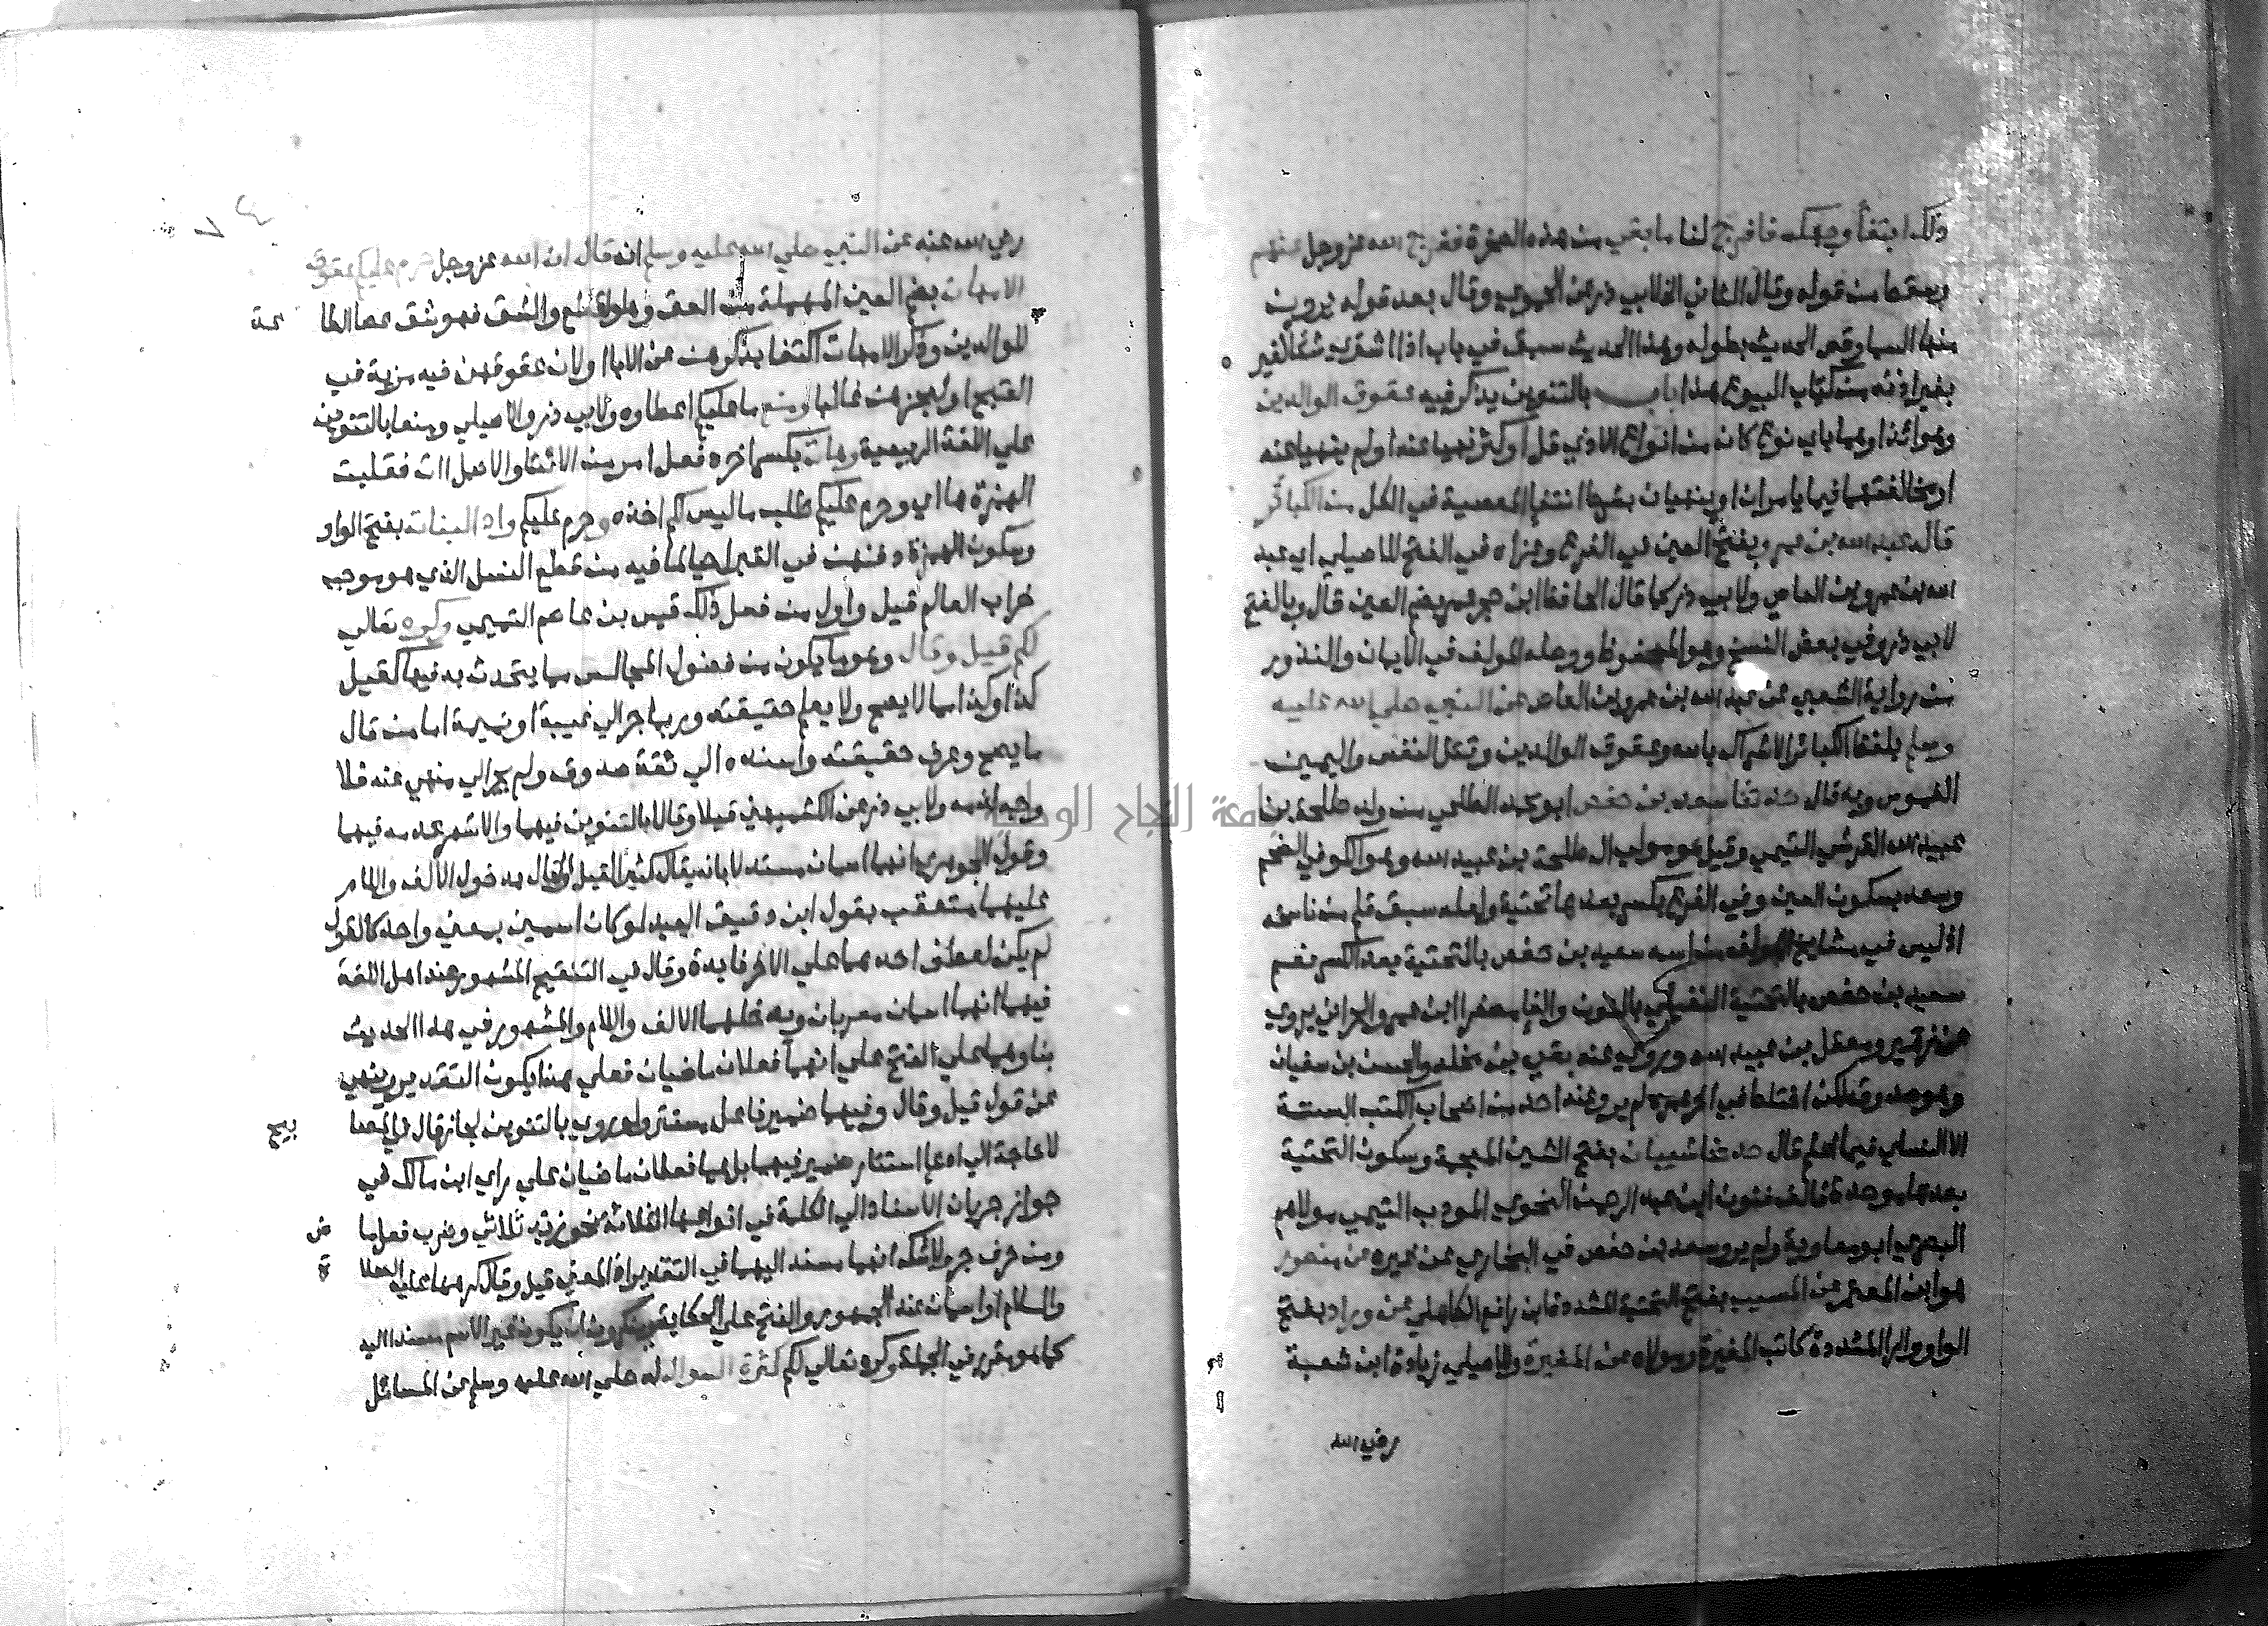 ذلك ابتغاء وجهك فافرج لنا ما بقي من هذه الصخرة ففرج الله عز وجل عنهم
وسقط من قوله وقال الثاني الخ لابي ذر عن الحموي وقال بعد قوله يرون
منها السما وقص الحديث بطوله وهذا الحديث سبق في باب اذا اشترى شيئا لغير
بغير اذنه من كتاب البيوع هذا باب بالتنوين يذكر فيه عقوق الوالدين
وهو ايذاوهما باي نوع كان من انواع الاذي قل او كثر نهيا عنه او لم ينهيا عنه
او مخالفتهما فيما يامران او ينهيان بشرط انتفا المعصية في الكل من الكبائر
قاله عبد الله بن عمرو بفتح العين في الفرع وعزاه في الفتح للاصيلي اي عبد
الله بن عمرو بن العاص ولابي ذر كما قال الحافظ ابن حجر عمر بضم العين قال وبالفتح
لابي ذر وفي بعض النسخ وهو المحفوظ ووصله المولف في الايمان والنذور
من رواية الشعبي عن عبد الله بن عمرو بن العاص عن النبي صلي الله عليه
وسلم بلفظ الكبائر الاشراك بالله وعقوق الوالدين وقتل النفس واليمين
الغموس وبه قال حدثنا سعد بن حفص ابو محمد الطلحي من ولد طلحة بن
عبيد الله القرشي التيمي وقيل هو مولي ال طلحة بن عبيد الله وهو الكوفي الضخم
وسعد بسكون العين وفي الفرع بكسر بعدها تحتية ولعله سبق قلم من ناسخه
اذ ليس في مشايخ المولف من اسمه سعيد بن حفص بالتحتية بعد الكسر نعم
سعيد بن حفص بالتحتية النفيلي بالنون والفا مصغرا ابن عمرو الحراني يروي
عن زهير ومعقل بن عبيد الله ويروي عنه بقي بن مخلد والحسن بن سفيان
وهو صدوق لكن اختلط في اخر عمره لم يرو عنه احد من اصحاب الكتب الستة
الا النساي فيما اعلم قال حدثنا شيبان بفتح الشين المعجمة وسكون التحتية
بعدها موحدة فالف فنون ابن عبد الرحمن النحوي المودب التيمي مولاهم
البصري ابو معاوية ولم يرو سعد بن حفص في البخاري عن غيره عن منصور
هو ابن المعتمر عن المسيب بفتح التحتية المشددة ابن رافع الكاهلي عن وراد بفتح
الواو والرا المشددة كاتب المغيرة ومولاه عن المغيرة وللاصيلي زيادة ابن شعبة
رضي الله
رضي الله عنه عن النبي صلي الله عليه وسلم انه قال ان الله عز وجل حرم عليكم عقوق
الامهات بضم العين المهملة من العق وهو القطع والشق فهو شق عصا الطا عة
للوالدين وذكر الامهات اكتفا بذكرهن عن الابا او لان عقوقهن فيه مزية في
القبح او لعجزهن غالبا ومنع ما عليكم اعطاوه ولابي ذر والاصيلي ومنعا بالتنوين
علي اللغة الربيعية وهات بكسر اخره فعل امر من الايتا والاصل اات فقلبت
الهمزة ها اي وحرم عليكم طلب ما ليس لكم اخذه وحرم عليكم واد البنات بفتح الواو
وسكون الهمزة دفنهن في القبر احيا لما فيه من قطع النسل الذي هو موجب
خراب العالم قيل واول من فعل ذلك قيس بن عاصم التميمي وكره تعالي
لكم قيل وقال وهو ما يكون من فضول المجالس مما يتحدث به فيها كقيل
كذا وكذا مما لا يصح ولا يعلم حقيقته وربما جر الي غيبة او نميمة اما من قال
ما يصح وعرف حقيقته واسنده الي ثقة صدوق ولم يجر الي منهي عنه فلا
وجه لذمه ولابي ذر عن الكشميهني قيلا وقالا بالتنوين فيهما والاشهر عدمه فيهما
وقول الجوهري انهما اسمان مستدلا بانه يقال كثير القيل والقال بدخول الالف واللام
عليهما متعقب بقول ابن دقيق العيد لو كان اسمين بمعني واحد كالقول
لم يكن لعطف احدهما علي الاخر فايدة وقال في التنقيح المشهور عند اهل اللغة
فيهما انهما اسمان معربان ويدخلهما الالف واللام والمشهور في هذا الحديث
بناوهما علي الفتح علي انهما فعلان ماضيان فعلي هذا يكون التقدير وينهي
عن قول قيل وقال وفيهما ضمير فاعل مستتر ولو روي بالتنوين لجاز قال في المصا بيح
لا حاجة الي ادعا استتار ضمير فيهما بل هما فعلان ماضيان علي راي ابن مالك في
جواز جريان الاسناد الي الكلمة في انواعها الثلاثة نحو زيد ثلاثي وضرب فعل ما ض
ومن حرف جر ولا شك انهما مسند اليهما في التقدير اذ المعني قيل وقال كرههما عليه الصلا ة
والسلام او اسمان عند الجمهور والفتح علي الحكاية وينكرون ان يكون غير الاسم مسندا اليه
كما هو مقرر في محله وكره تعالي لكم كثرة السوال له صلي الله عليه وسلم عن المسائل
جامعة النجاح الوطنية